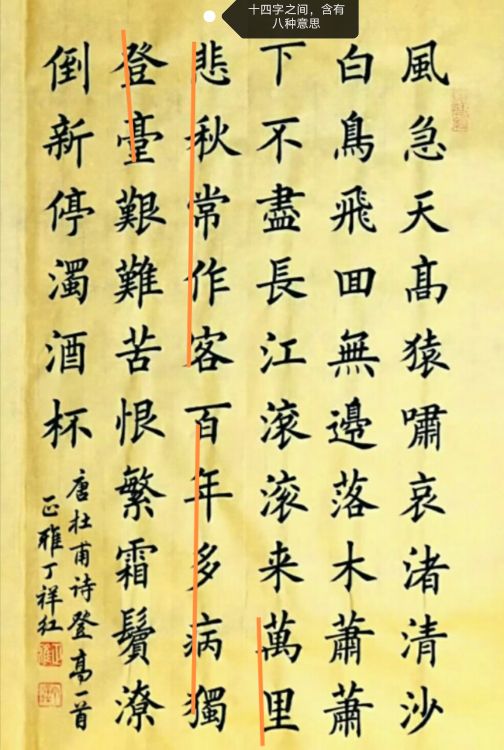 十四字之间，含有
八种意思
風急天髙猿嘯哀渚清沙
白鳥飛囬無邊落木蕭蕭
下不盡長江滾滾来萬里
悲秋常作客百年多病獨
登臺艱難苦恨繁霜鬢潦
倒新停濁酒杯
唐杜甫诗登高一首
正雅丁祥红